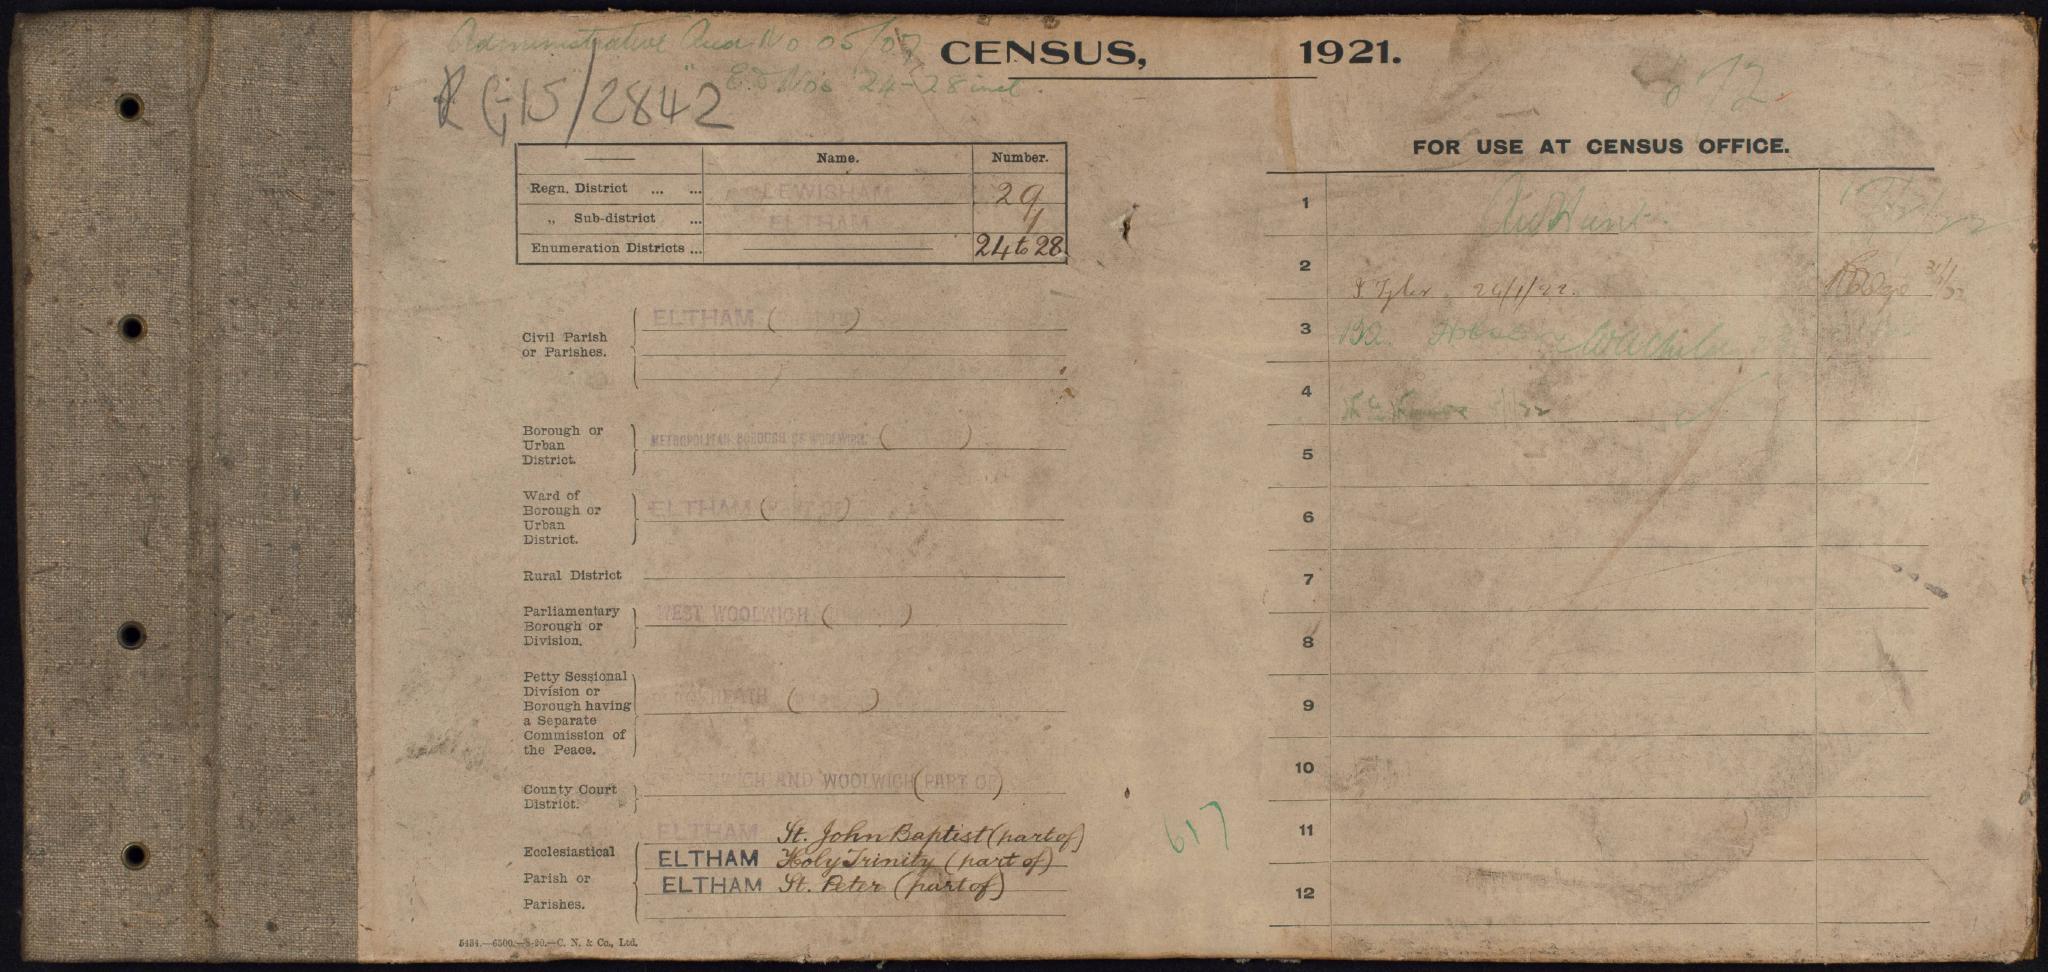 Administrative Area No 05/07
CENSUS, 1921.
" E.D Nos 24-28 incl.
RG15/2842
672
FOR USE AT CENSUS OFFICE.
Name. Number.
Regn. District ... ... LEWISHAM 29
„ Sub-district ... ELTHAM 1
Enumeration Districts ... 24 to 28
Civil Parish
or Parishes.
ELTHAM ( )
Borough or
Urban
District.
METROPOLITAN BOROUGH OF WOOLWICH. (PART OF)
Ward of
Borough or
Urban
District.
ELTHAM (PART OF)
Rural District
Parliamentary
Borough or
Division.
WEST WOOLWICH ( )
Petty Sessional
Division or
Borough having
a Separate
Commission of
the Peace.
( )
County Court
District.
AND WOOLWICH (PART OF)
Ecclesiastical
Parish or
Parishes.
ELTHAM St. John Baptist (part of)
ELTHAM Holy Trinity (part of)
ELTHAM St. Peter (part of)
617
5434.—6500.—8-20.—C. N. & Co., Ltd.
1 Hunt
2 Tyler 26/1/22.
3
4
5
6
7
8
9
10
11
12